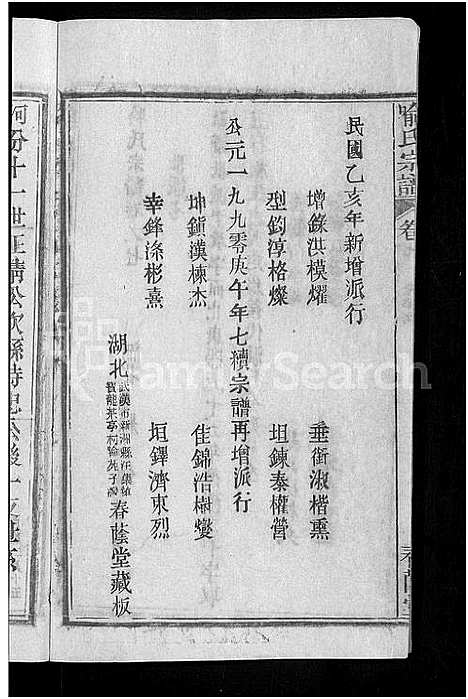 喻氏宗譜 卷
民國乙亥年新增派行
增錄洪模燿 垂銜淑楷熏
型鈞淳格燦 坦鍊泰權營
公元一九九零庚午年七續宗譜再增派行
坤鎮漢棟杰 佳錦浩樹燮
幸鋒滌彬熹 垣鐸濟東烈
湖北 武漢市新洲縣汪集鎮 茶亭村喻 春蔭堂藏板
十一世
FamilySearch